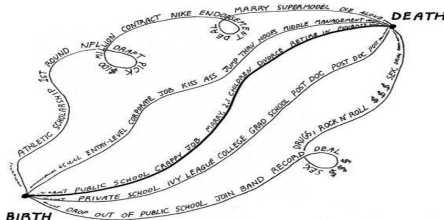 DEATH
ATHLETIC SCHOLARSHIP 1ST ROUND NFL DRAFT PICK $100 MILLION CONTRACT NIKE ENDORSEMENT DEAL MARRY SUPERMODEL DIE ALONE
ENTRY-LEVEL CORPORATE JOB KISS ASS JUMP THRU HOOPS MIDDLE MANAGEMENT
PUBLIC SCHOOL CRAPPY JOB MARRY 2.1 CHILDREN DIVORCE RETIRE IN
PRIVATE SCHOOL IVY LEAGUE COLLEGE GRAD SCHOOL POST DOC POST DOC POST
DROP OUT OF PUBLIC SCHOOL JOIN BAND RECORD DEAL $$$ SEX, DRUGS, ROCK N' ROLL $$$ SEX,
BIRTH